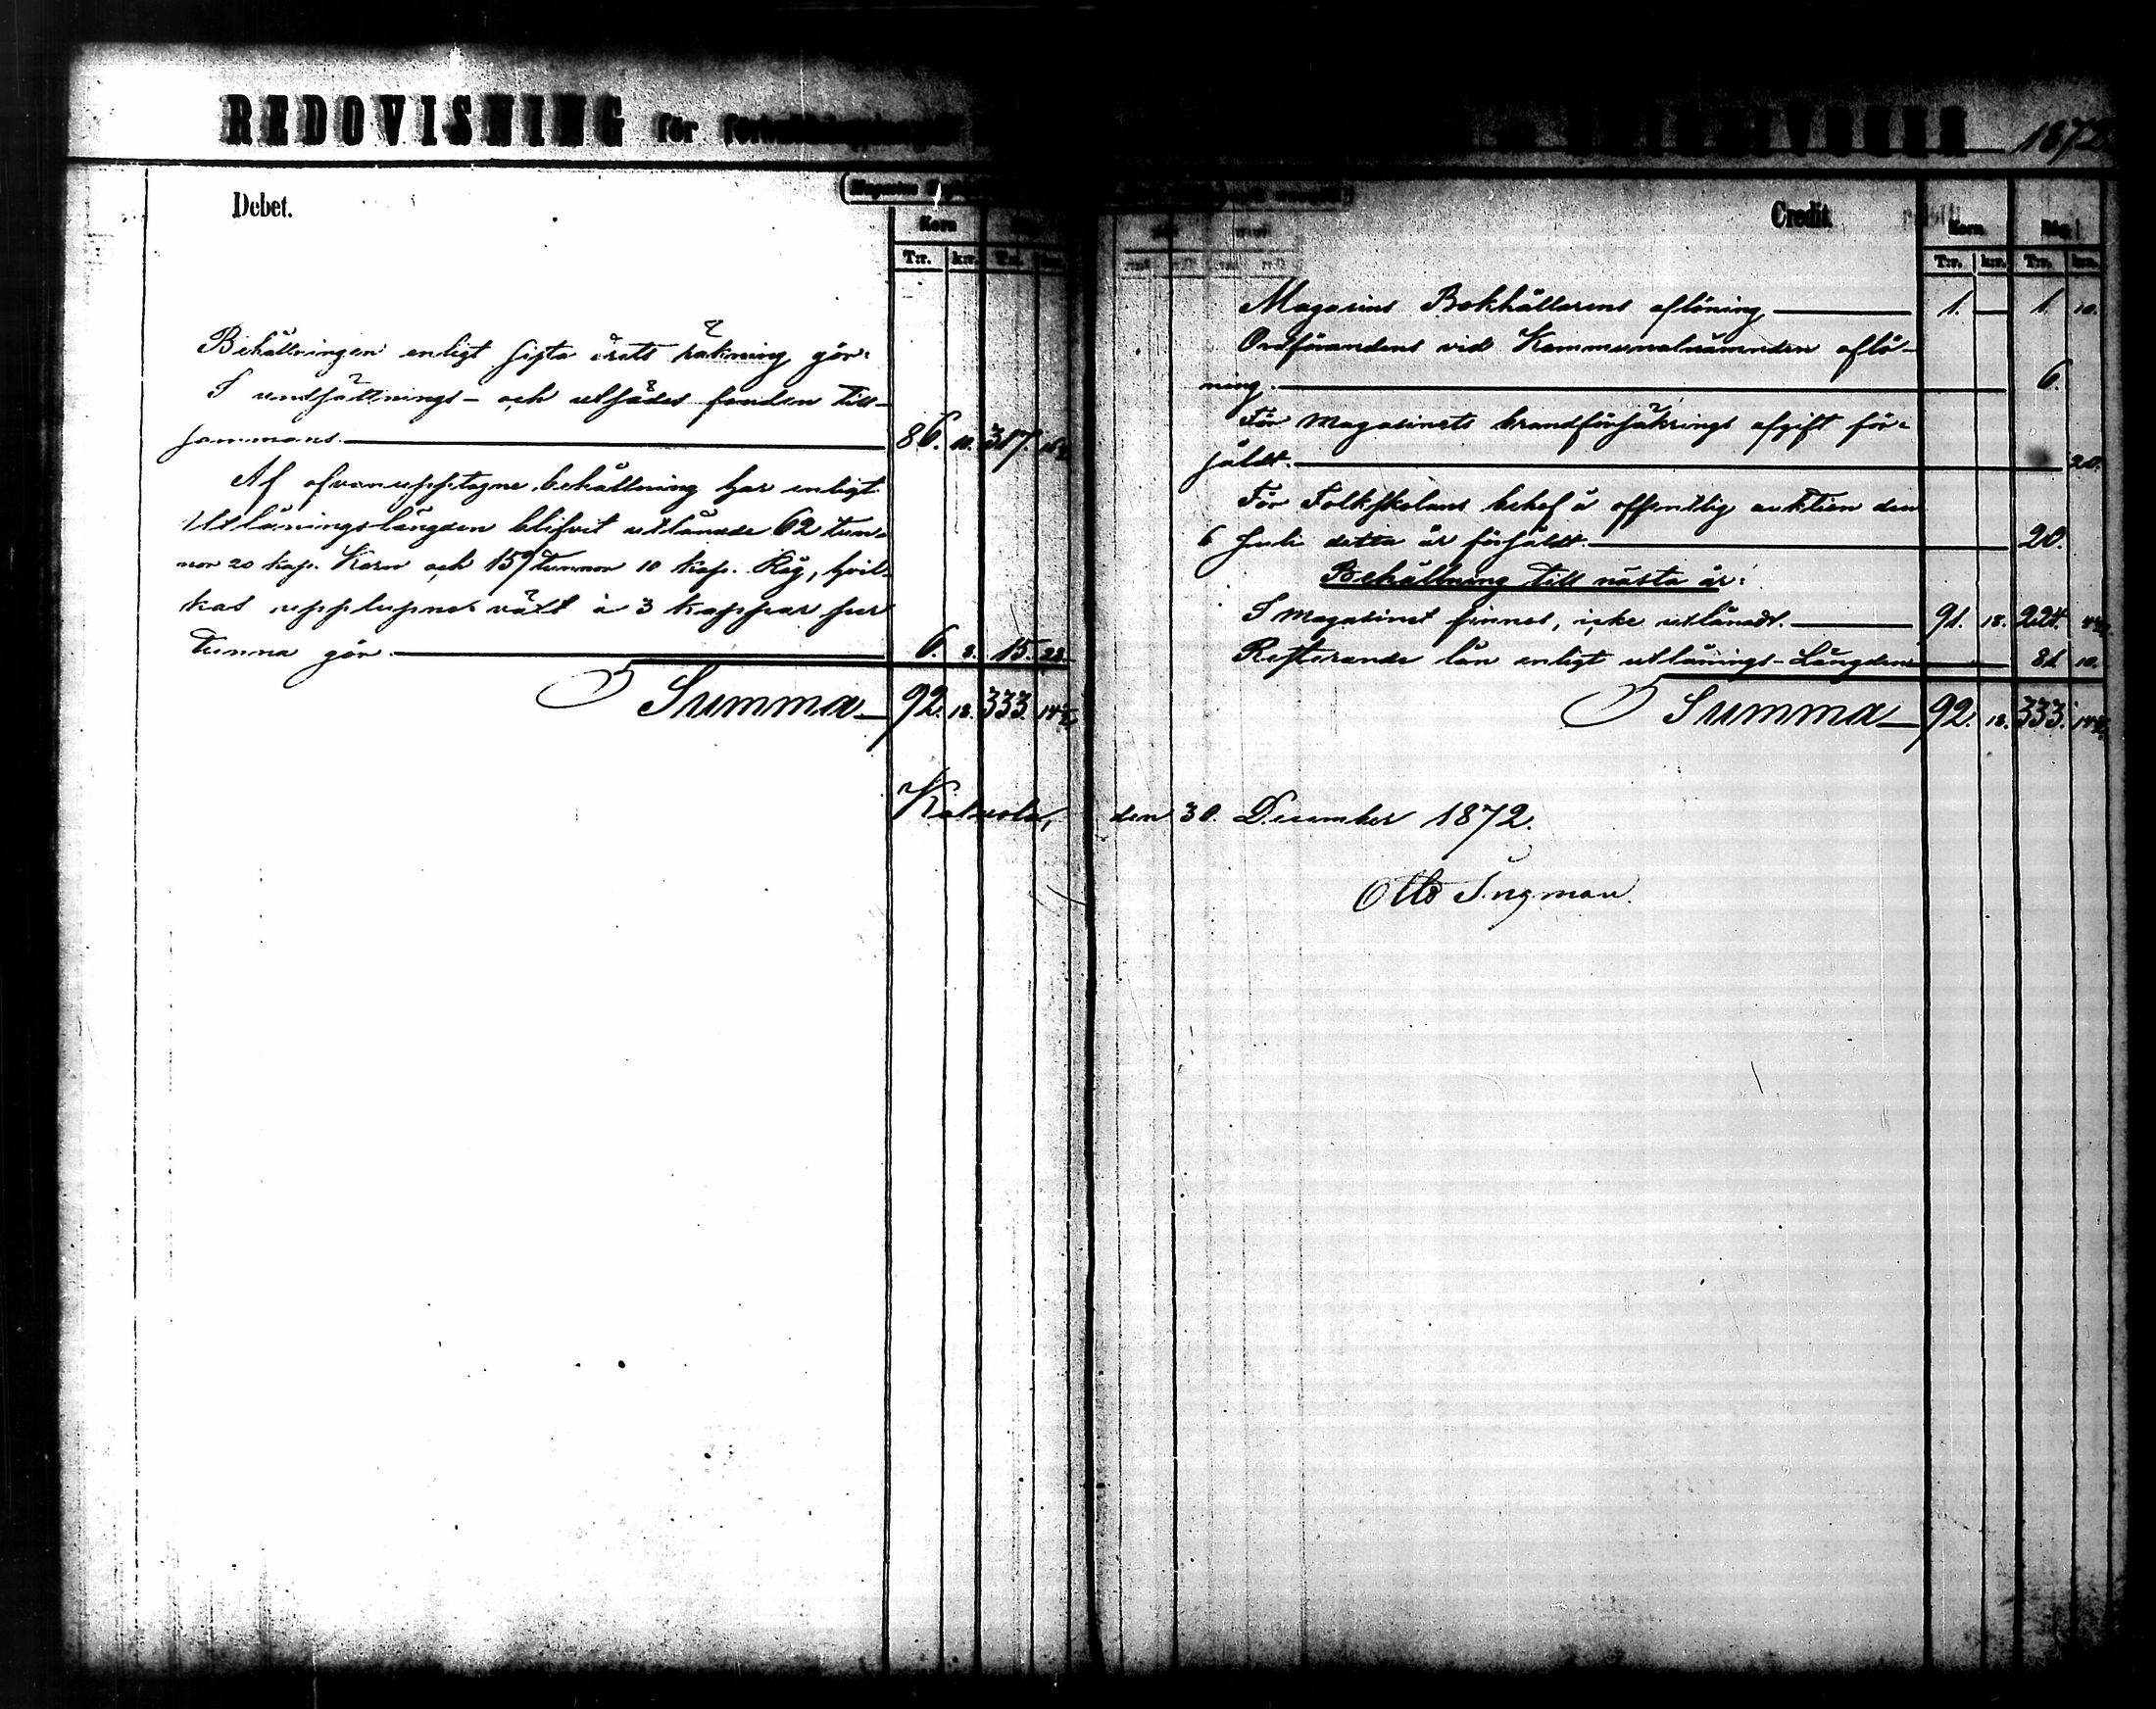 REDOVISNING för
1872
Debet.
Korn
T:r. k:r.
Behållningen enligt sista årets räkning gör:
I undsättnings- och utsädes fonden till-
sammans. 86. 10. 317.
Af ofvanupptagne behållning har enligt
Utlåningslängden blifvit utlånade 62 tun-
nor 20 kap. Korn och 157 tunnor 10 kap. Råg, hvil-
kas upplupne växt à 3 kappar per
tunna gör. 6. 8. 15. 23.
Summa 92. 18. 333. 14½
Credit
Korn Råg
T:r. k:r. T:r. k:r.
Magasins Bokhållarens aflöning 1. — 1. 10.
Ordförandens vid Kommunalnämnden aflö-
ning. 6.
För magasinets brandförsäkrings afgift för-
såldt. 20.
För Folkskolans behof å offentlig auktion den
6 Juli detta år försåldt. 20.
Behållning till nästa år:
I magasinet finnes, icke utlånadt. 91. 18. 224.
Resterande lån enligt utlånings-Längden 81 10.
Summa 92. 18. 333. 14½
Kalvola, den 30. December 1872.
Otto Ingman.